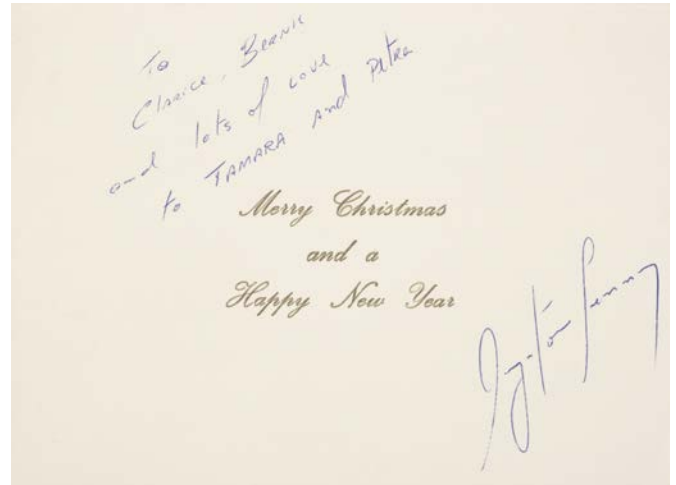 To
Clarice, Bernie
and lots of love
to TAMARA and Petra
Merry Christmas
and a
Happy New Year
Ayrton Senna